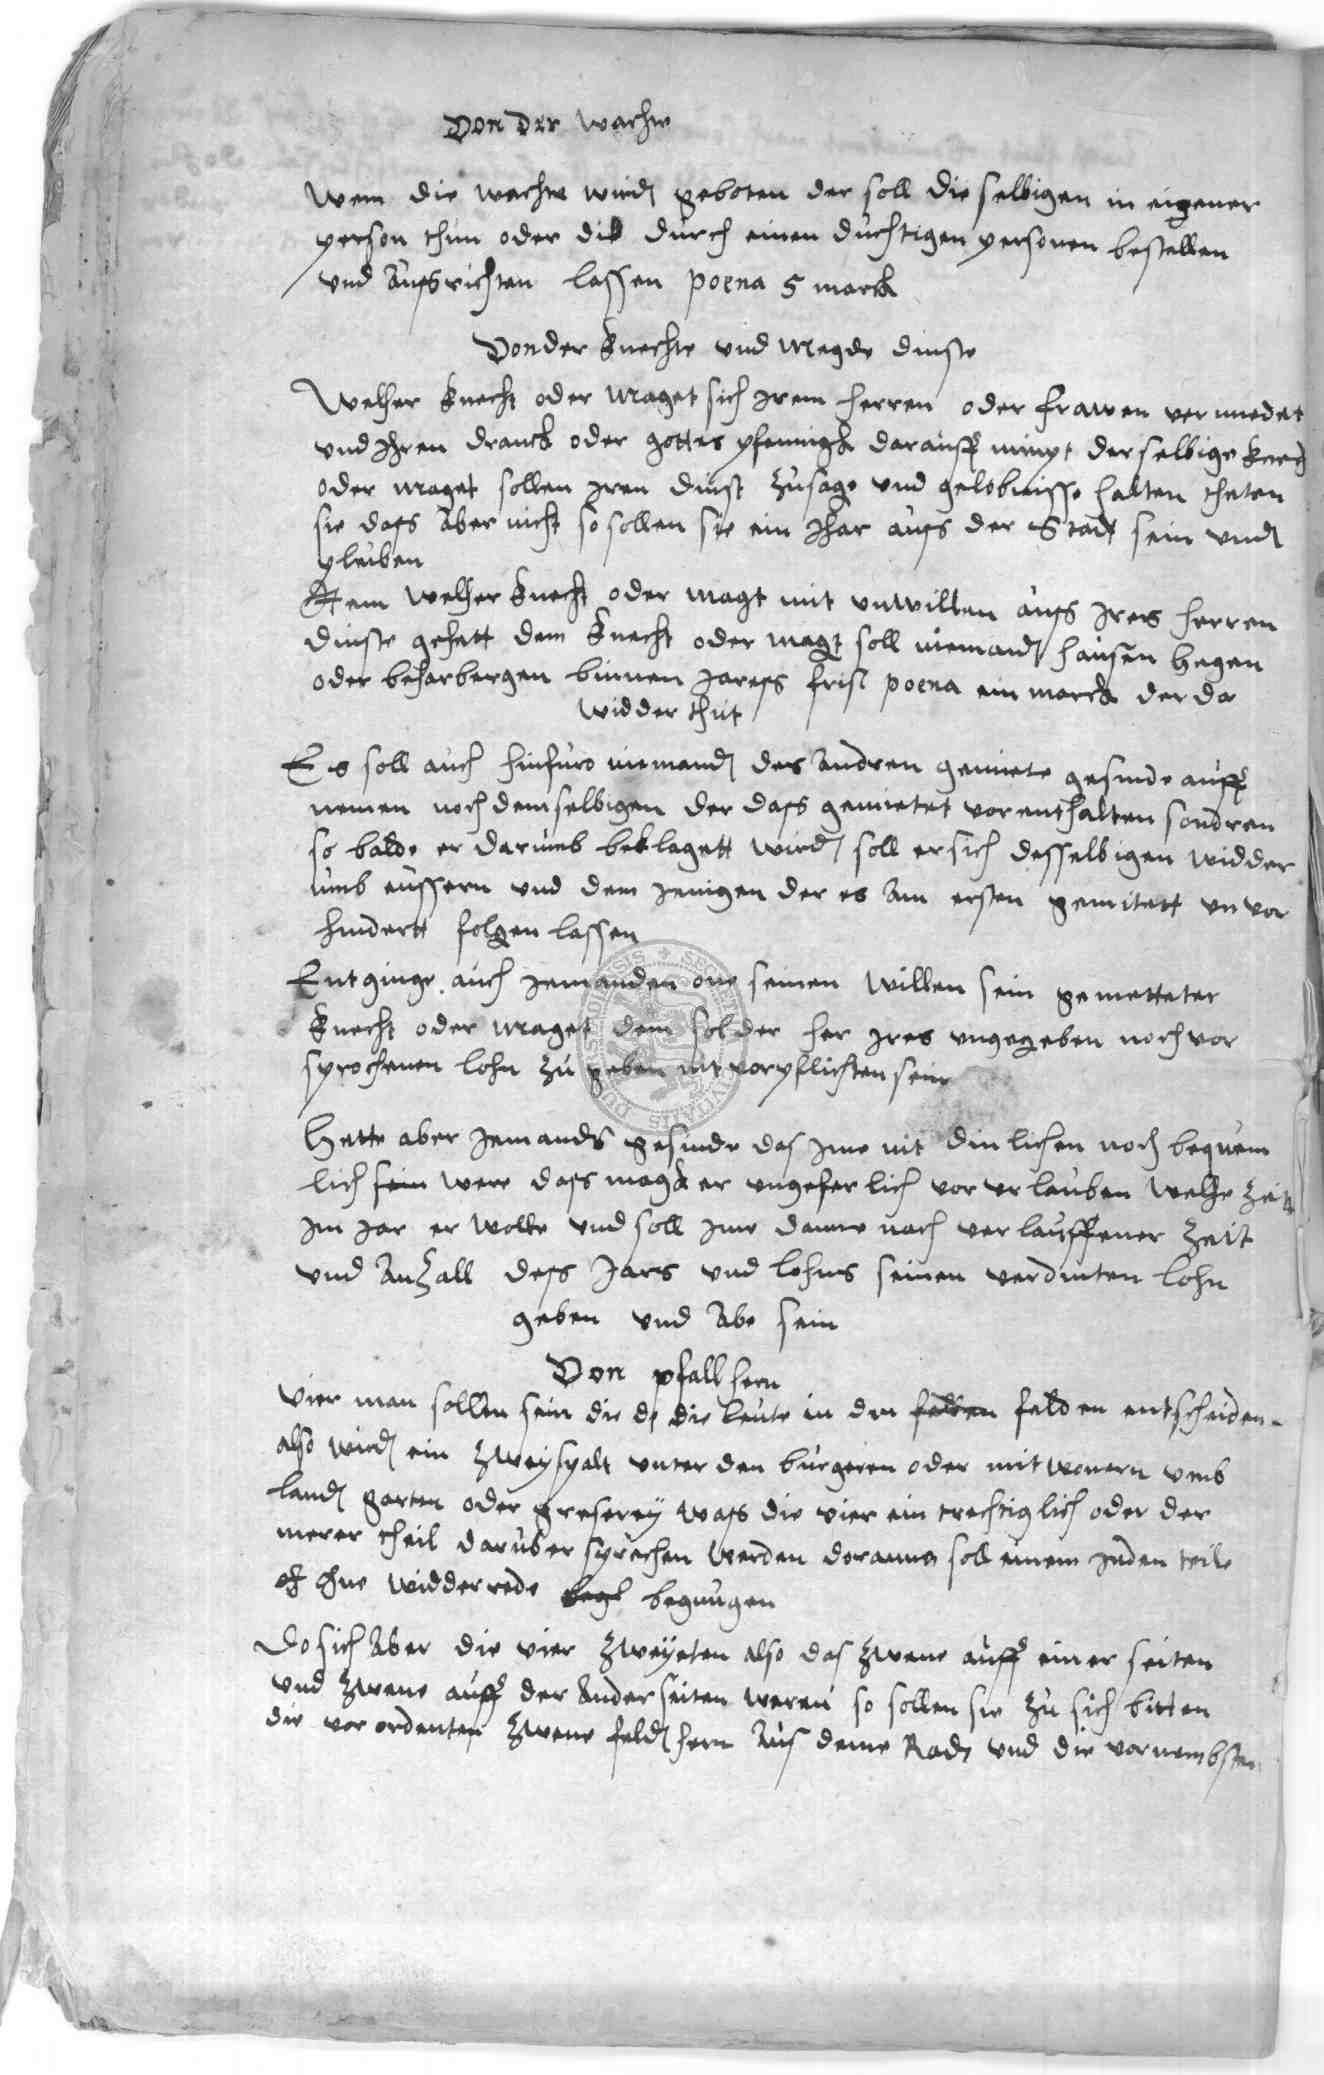 Von der wachte
Wem die wachte wirdt geboten der soll die selbigen in eigener
person thun oder die durch einen duchtigen personen bestellen
vnd aussrichten lassen poena 5 marck
Von der knechte vnd Megde dinste
Welcher knecht oder Maget sich jrem herren oder frawen vermiedet
vnd jhren dranck oder gottes pfennigk darauff nimpt derselbige knecht
oder Maget sollen jren dinst zusage vnd gelobnisse halten theten
sie dass aber nicht so sollen sie ein jhar auss der Stadt sein vnd
pleiben
Item welcher knecht oder Magt mit vnwillen auss jres herren
dinste gehett dem knecht oder magt soll niemandt hausen hegen
oder beharbergen binnen jaress frist poena ein marck der da
widder thut
Es soll auch hinfuro niemandt des andren geniete gesinde auff
nemen noch demselbigen der dass gemietet vorenthalten sondren
so balde er darumb beklagett wirdt soll er sich desselbigen widder
umb eussern vnd dem jenigen der es am ersten gemitett vnvor
hindertt folgen lassen
Entginge auch jemanden one seinen willen sein gemetteter
knecht oder Maget dem sol der her jres vngegeben noch vor
sprochenen lohn zu geben nit vorpflichten sein
Hette aber jemands gesinde das jme nit dinlichen noch bequem
lich sein were dass magk er vngeferlich vorurlauben welche zeitt
jm jar er wolle vnd soll jme danne nach verlauffener zeit
vnd anzall dess jars vnd lohns seinen verdinten lohn
geben vnd abe sein
Von pfallhern
Vier man sollen sein die do die leute in den felden felden entscheiden
also wirdt ein zweyspalt vnter den burgeren oder mitwonern vmb
landt garten oder greserey wass die vier eintrechtiglich oder der
merer theil daruber sprechen werden doranne soll einem jeden teile
ohne widderrede begnugen
Do sich aber die vier zweyeten also das zwene auff einer seiten
vnd zwene auff der ander seiten weren so sollen sie zu sich bitten
die vorordenten zwene feldt hern aus deme Radt vnd die vornembsten